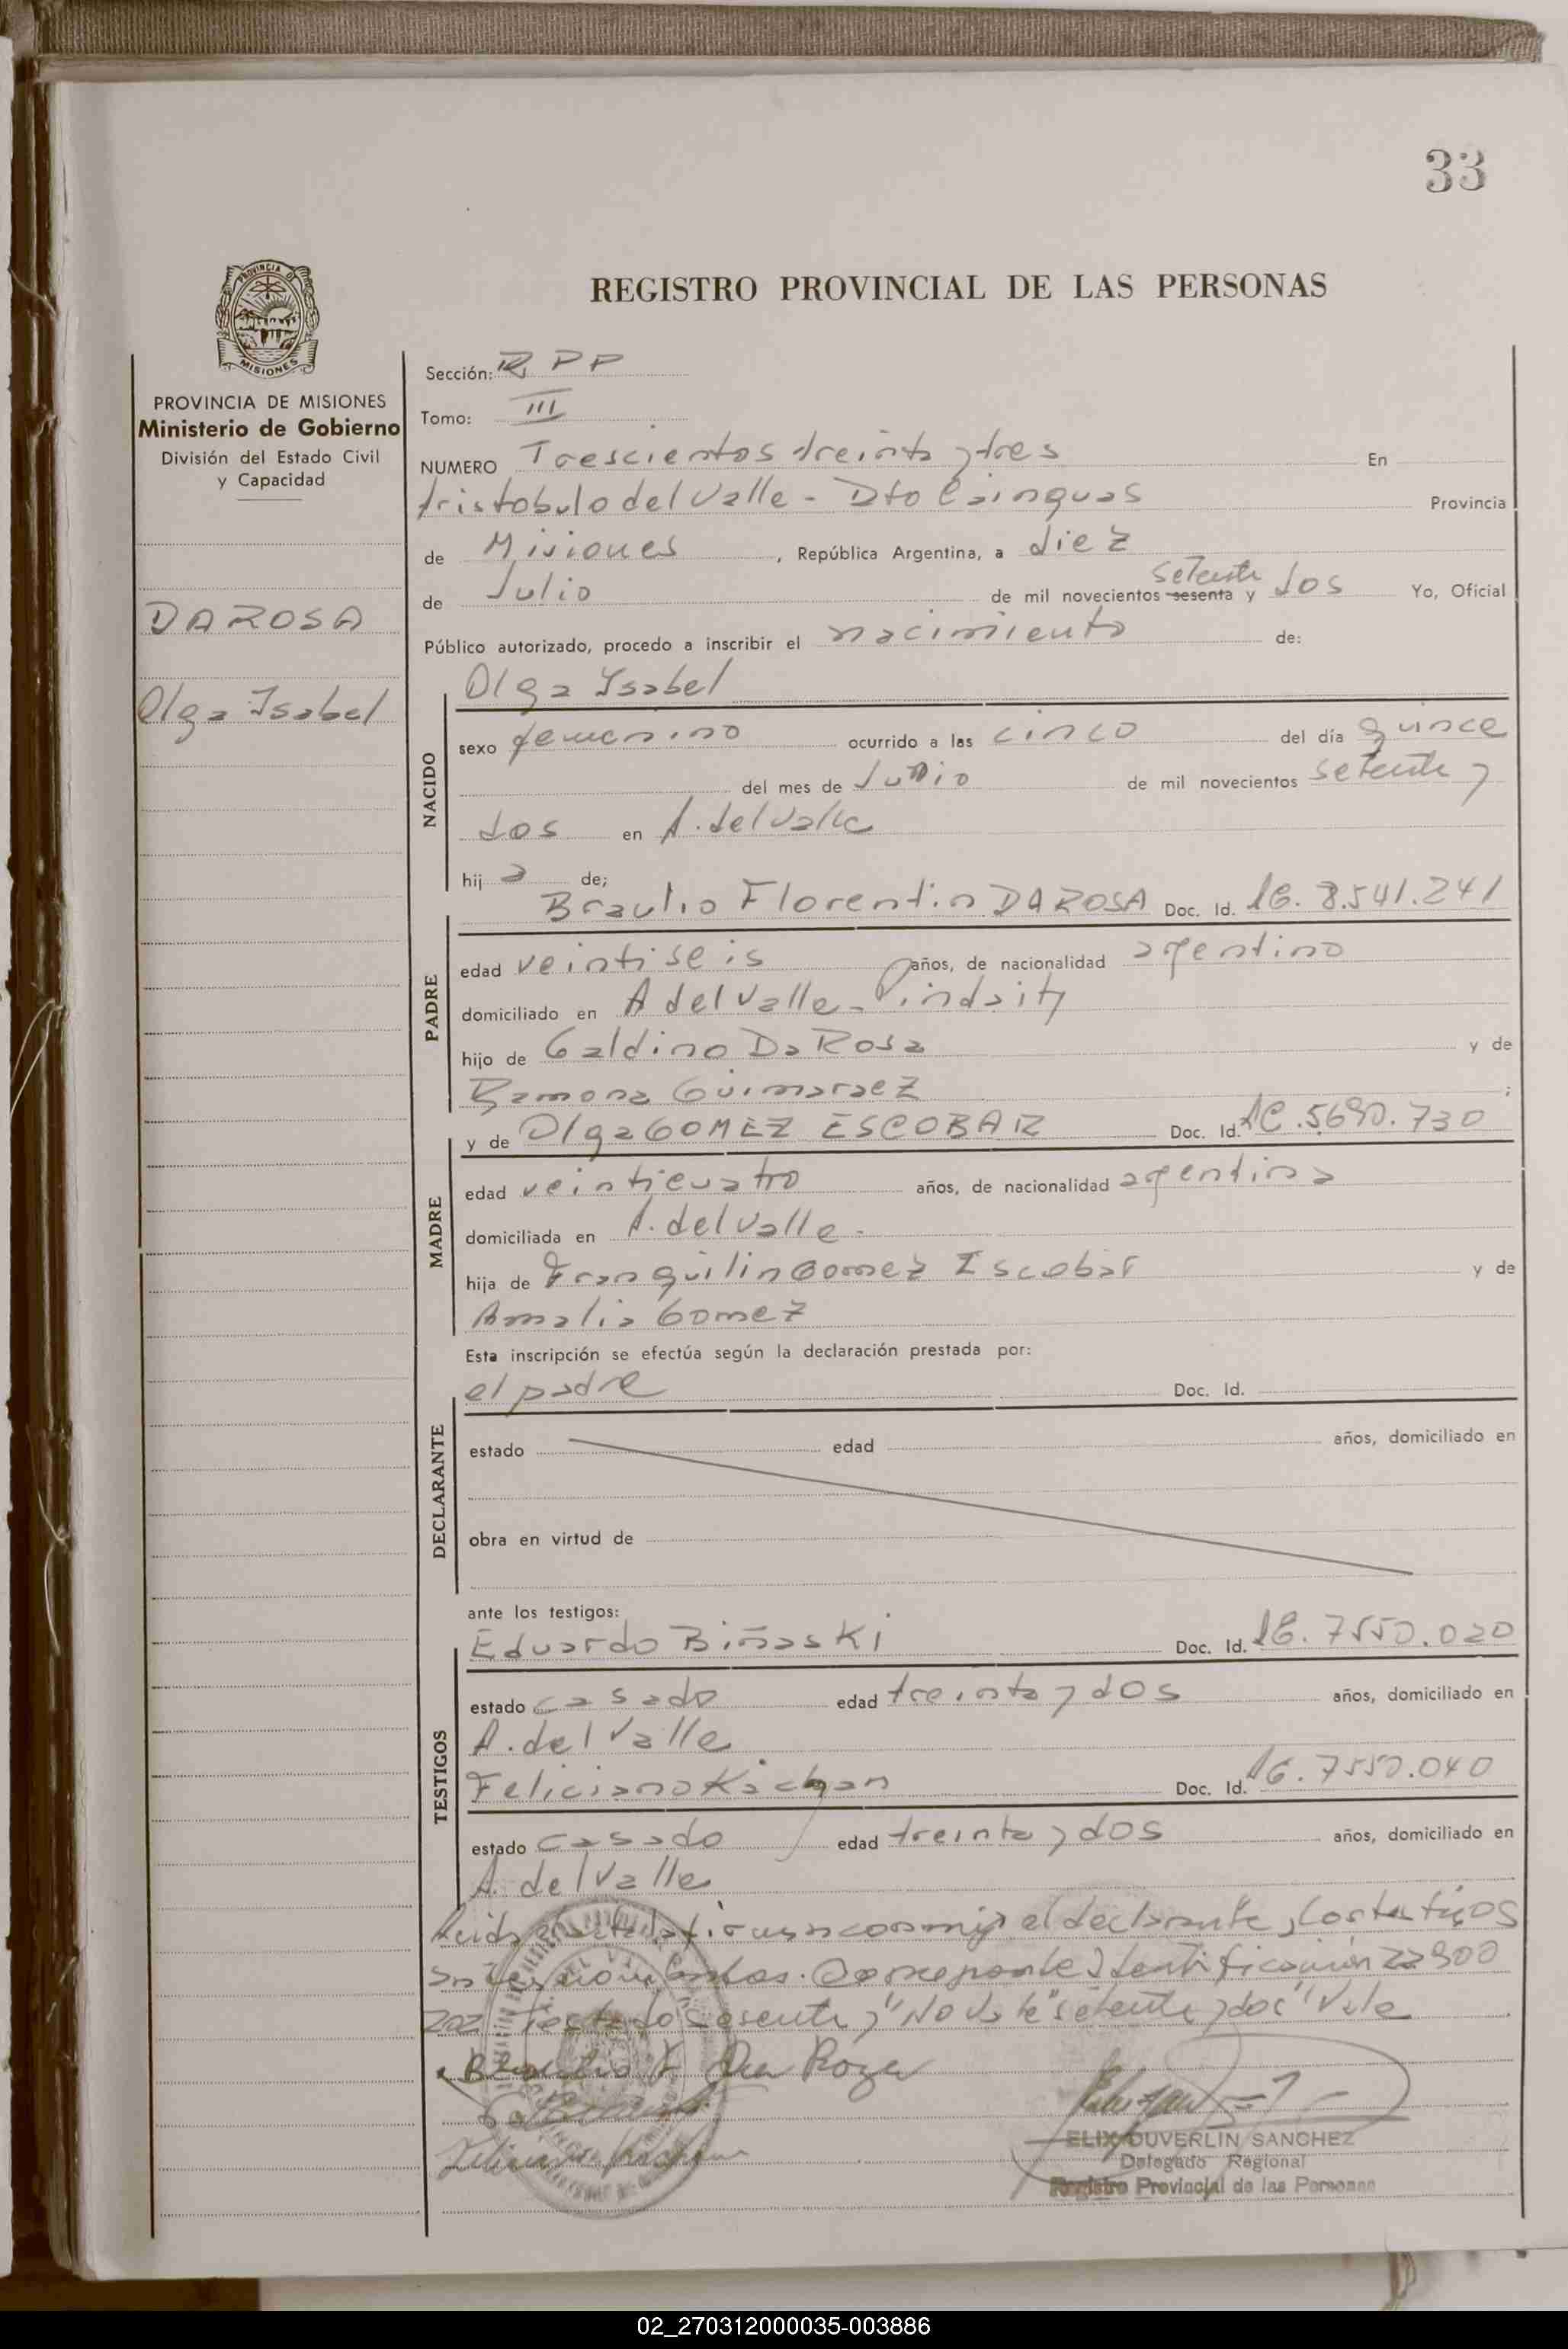 33
PROVINCIA DE
MISIONES
PROVINCIA DE MISIONES
Ministerio de Gobierno
División del Estado Civil
y Capacidad
DAROSA
Olga Isabel
REGISTRO PROVINCIAL DE LAS PERSONAS
Sección: R P P
Tomo: III
NUMERO Trescientos treinta y tres En
Aristobulo del Valle - Dto Cainguas Provincia
de Misiones, República Argentina, a diez
de Julio de mil novecientos sesenta setenta y dos Yo, Oficial
Público autorizado, procedo a inscribir el nacimiento de:
NACIDO
Olga Ysabel
sexo femenino ocurrido a las cinco del día quince
del mes de Junio de mil novecientos setenta y
dos en A. del Valle
hij a de;
PADRE
Braulio Florentin DA ROSA Doc. Id. 8.541.241
edad veintiseis años, de nacionalidad argentino
domiciliado en A del Valle - Pindaity
hijo de Galdino Da Rosa y de
Ramona Guimaraez ;
MADRE
y de Olga GOMEZ ESCOBAR Doc. Id. 5690.730
edad veinticuatro años, de nacionalidad argentina
domiciliada en A. del Valle -
hija de Franquilin Gomez Escobar y de
Amalia Gomez
Esta inscripción se efectúa según la declaración prestada por:
DECLARANTE
el padre Doc. Id.
estado edad años, domiciliado en
obra en virtud de
ante los testigos:
TESTIGOS
Eduardo Biñaski Doc. Id. 7550.020
estado casado edad treinta y dos años, domiciliado en
A. del Valle
Feliciano Kachan Doc. Id. 7550.040
estado casado edad treinta y dos años, domiciliado en
A. del Valle
Leida el acta la firman conmigo el declarante y los testigos
antes nombrados. Corresponde Identificación 22900
202 Testado "sesenta y" No Vale "setenta y dos" Vale
Braulio F Da Roza
Feliciano Kachan
ELIX DUVERLIN SANCHEZ
Delegado Regional
Registro Provincial de las Personas
02_270312000035-003886